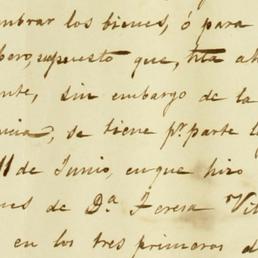 mbrar los bienes, ó para
pero, supuesto que, hta ah
nte, sin embargo de la
ncia, se tiene pr. parte l
11 de Junio, en que hizo
nes de Da. Teresa Vil
en los tres primeros d